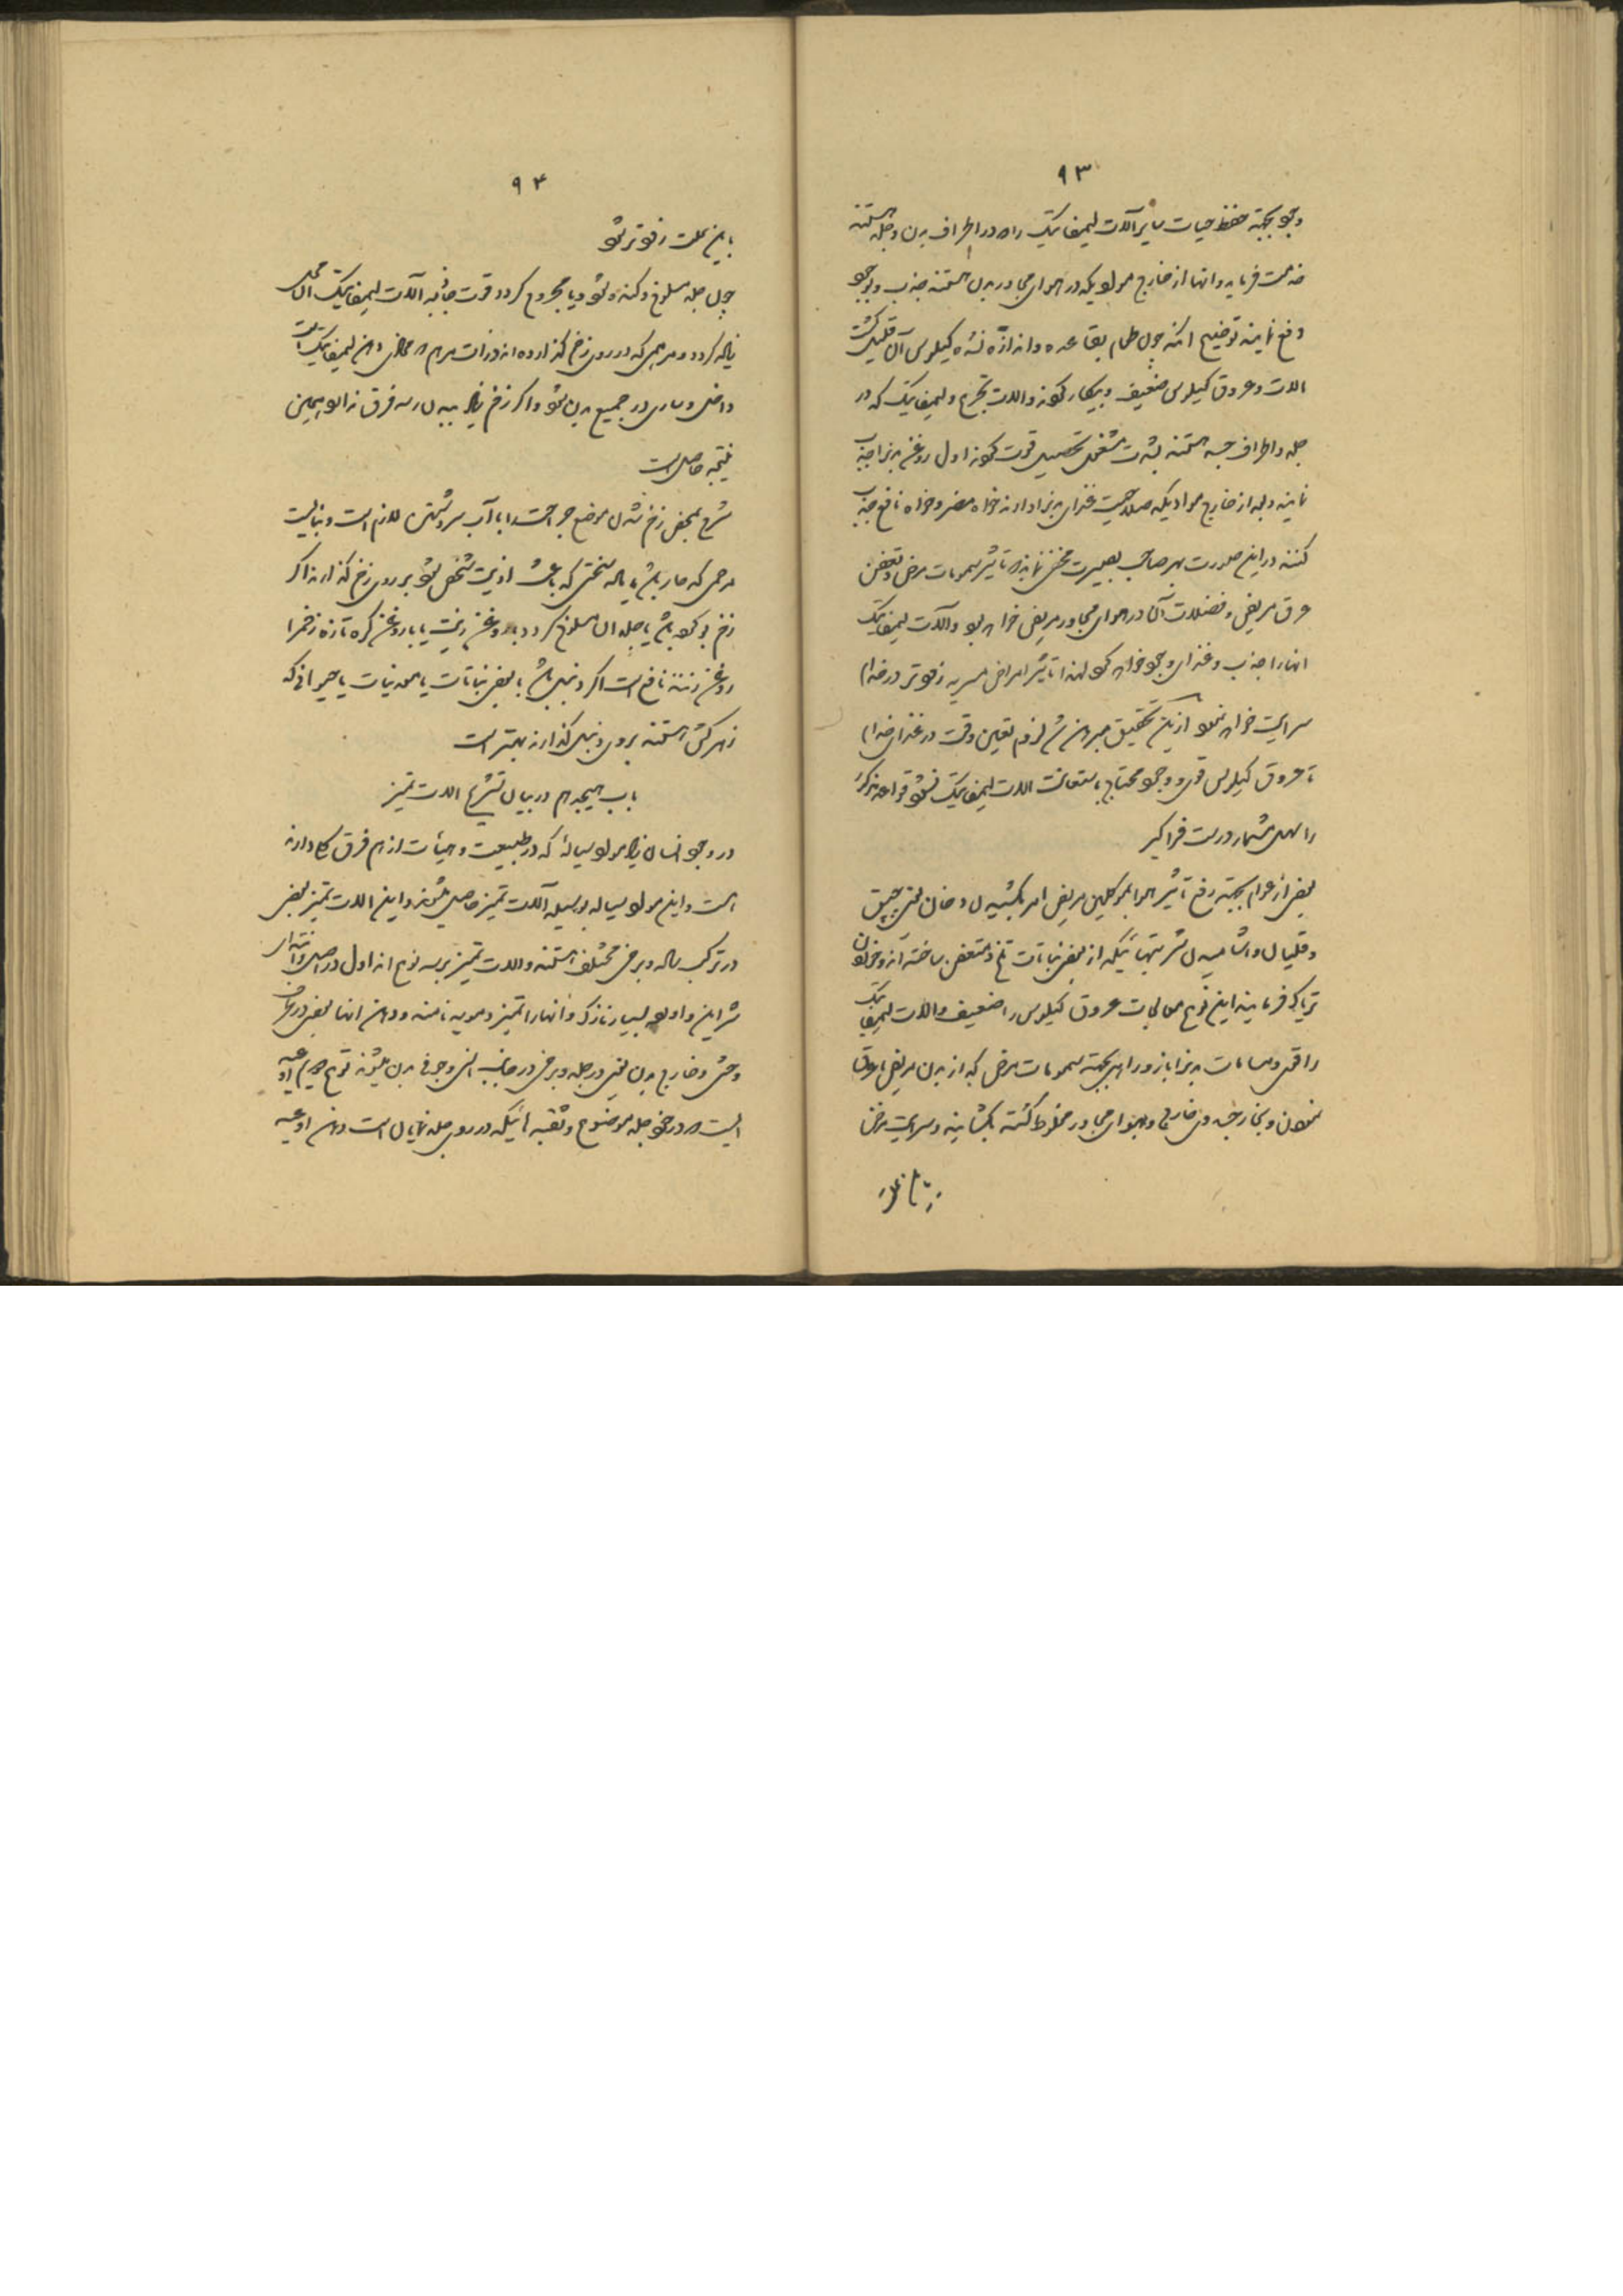 ۹۳
وجود بجهته حفظ حیات سایر آلات لیمفاتیک را که در اطراف بدن و جلد هستند
خدمت فرماید و انها از خارج موادیکه در هوای مجاور بدن هستند جذب و بوجود
دفع نمایند توضیح انکه چون طعام بقاعده و اندازه نشد کیلوس آن قلیل گشت
الات و عروق کیلوس ضعیف و بیکار گردند و الات لیمفاتیک که در
جلد و اطراف جسد هستند بشدت مشغول تحصیل قوت گردند اول روغن بدنرا جذب
نمایند و بعد از خارج موادیکه صلاحیت غذای بدنرا دارند خواه مضر و خواه نافع جذب
کنند در این صورت بهر صاحب بصیرت مخفی نماند که تاثیر سمومات مرض و تعفن
عرق مریض و فضلات آن در هوای مجاور مریض خواهد بود و آلات لیمفاتیک
انها را جذب و غذای وجود خواهد کرد لهذا تاثیر امراض مسریه زودتر در خدام
سرایت خواهد نمود از این تحقیق مبرهن شد لزوم تعیین وقت در غذای خدام
تا عروق کیلوس قوی و وجود محتاج باستعانت الات لیمفاتیک نشود قواعد مذکوره
را سهل مشمار و درست فراگیر
بعضی از عوام بجهته رفع تاثیر هوا بموکلین مریض امر بکشیدن دخان یعنی چپق
و قلیان و اشامیدن شربتهائیکه از بعض نباتات تلخ و متعفن ساخته اند و خوردن
تریاک فرمایند این نوع معالجات عروق کیلوس را ضعیف و الات لیمفاتیک
را قوی و مسامات بدنرا باز و راهی بجهته سمومات مرض که از بدن مریض بعروق
بخارج و هوای مجاور مخلوط گشته بگشایند و سرایت مرض
۹۴
باین علت زودتر شود
چون جلد مسلوخ و کنده شود و یا مجروح گردد قوت جاذبه الات لیمفاتیک ان محل
زیاده گردد و مرهمی که در روی زخم گذارده اند ذرات مرهم در لیمفاتیک است
داخل و ساری در جمیع بدن شود و اگر زخم زیاد ببدن رسد فرق نه از او همین
نتیجه حاصل است
شرح بمحض زخم شدن موضع جراحت را با آب سرد شستن لازم است و نبایست
مرهمی که حار باشد یا ماده سختی که باعث اذیت شخص شود بر روی زخم گذارند اگر
زخم بوده باشد یا جلد ان مسلوخ گردد با روغن زیت یا با روغن کره تازه زخمرا
روغن زنند نافع است اگر دنبل باشد بعض نباتات یا معدنیات یا حیوانی که
زهرکش هستند بروی دنبل گذارند بهتر است
باب هیجدهم در بیان تشریح الات تمیز
در وجود انسان زیاد مواد سیاله که در طبیعت و هیأت از هم فرق کلی دارند
هست و این مواد سیاله بوسیله آلات تمیز حاصل میشوند و این الات تمیز بعضی
در ترکیب ساده و برخی مختلف هستند و الات تمیز بر سه نوع اند اول در اصل و انتهای
شراین و اورده بسیار نازک و انها را تمیز دمویه نامند و دهن انها بعضی در
وحشی و خارج بدن یعنی در جلد و برخی در جانب انسی و جوف بدن میشوند نوع دوم اوعیه
ایست که در خود جلد موضوع و ثقبه هائیکه در روی جلد نمایان است دهن اوعیه